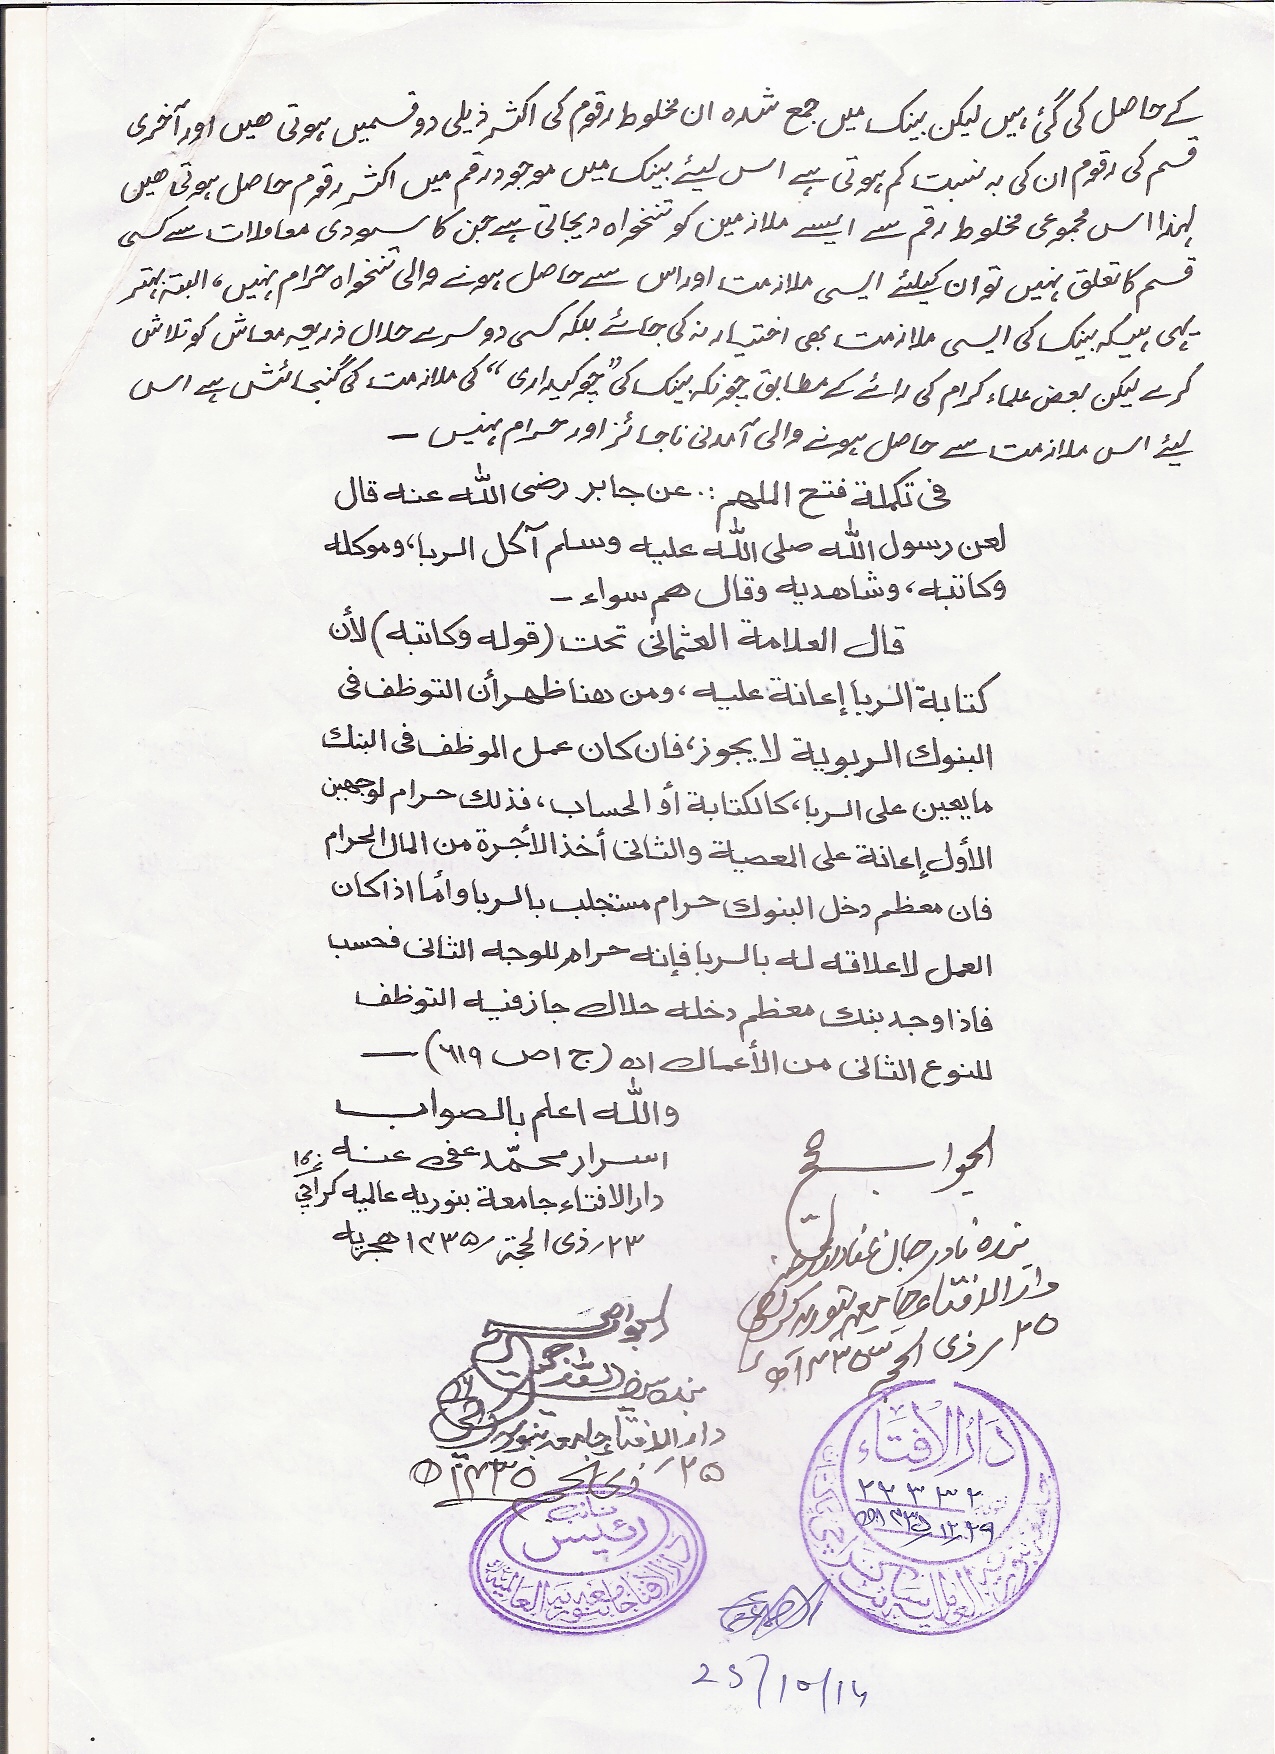 کے حاصل کی گئی ہیں لیکن بینک میں جمع شدہ ان مخلوط رقوم کی اکثر ذیلی دو قسمیں ہوتی ھیں اور آخری
قسم کی رقوم ان کی بہ نسبت کم ہوتی ہے اس لیئے بینک میں موجود رقم میں اکثر رقوم حاصل ہوتی ھین
لہذا اس مجموعی مخلوط رقم سے ایسے ملازمین کو تنخواہ دیجاتی ہے جن کا سودی معاملات سے کسی
قسم کا تعلق نہیں تو ان کیلئے ایسی ملازمت اور اس سے حاصل ہونے والی تنخواہ حرام نہیں، البتہ بہتر
یہی ہیکہ بینک کی ایسی ملازمت بھی اختیار نہ کی جائے بلکہ کسی دوسرے حلال ذریعہ معاش کو تلاش
کرے لیکن بعض علماء کرام کی رائے کے مطابق چونکہ بینک کی "چوکیداری" کی ملازمت کی گنجائش ہے اس
لیئے اس ملازمت سے حاصل ہونے والی آمدنی ناجائز اور حرام نہیں ۔
فی تکملة فتح الملھم :. عن جابر رضی اللّٰہ عنہ قال
لعن رسول اللّٰہ صلی اللّٰہ علیہ وسلم آکل الربا، وموکلہ
وکاتبہ، وشاھدیہ وقال ھم سواء ۔
قال العلامة العثمانی تحت (قولہ وکاتبہ) لأن
کتابة الربا إعانة علیہ، ومن ھنا ظھر أن التوظف فی
البنوک الربویة لا یجوز، فان کان عمل الموظف فی البنک
ما یعین علی الربا، کالکتابة أو الحساب، فذلک حرام لوجھین
الأول إعانة علی المعصیة والثانی أخذ الأجرة من المال الحرام
فان معظم دخل البنوک حرام مستجلب بالربا وأما اذا کان
العمل لا علاقہ لہ بالربا فإنہ حرام للوجہ الثانی فحسب
فاذا وجد بنک معظم دخلہ حلال جاز فیہ التوظف
للنوع الثانی من الأعمال اہ (ج ۱ ص ۶۱۹) ۔
واللّٰہ اعلم بالصواب
اسرار محمّد عفی عنہ
دارالافتاء جامعة بنوریہ عالیہ کراچی
۲۳؍ ذی الحجة؍ ۱۴۳۵ ھجریہ
الجواب صحیح
بندہ نادر جان
دارالافتاء جامعہ بنوریہ کراچی
۲۵؍ ذی الحجہ ۱۴۳۵ھ
الجواب صحیح
بندہ سیف اللہ
دارالافتاء جامعہ بنوریہ
۲۵ ذی الحجہ ۱۴۳۵ھ
دار الافتاء
۲۲۳۳۲
۲۹؍۱۲؍۱۴۳۵ھ
نائب
رئیس
دار الافتاء جامعہ بنوریہ العالمیہ
25/10/14